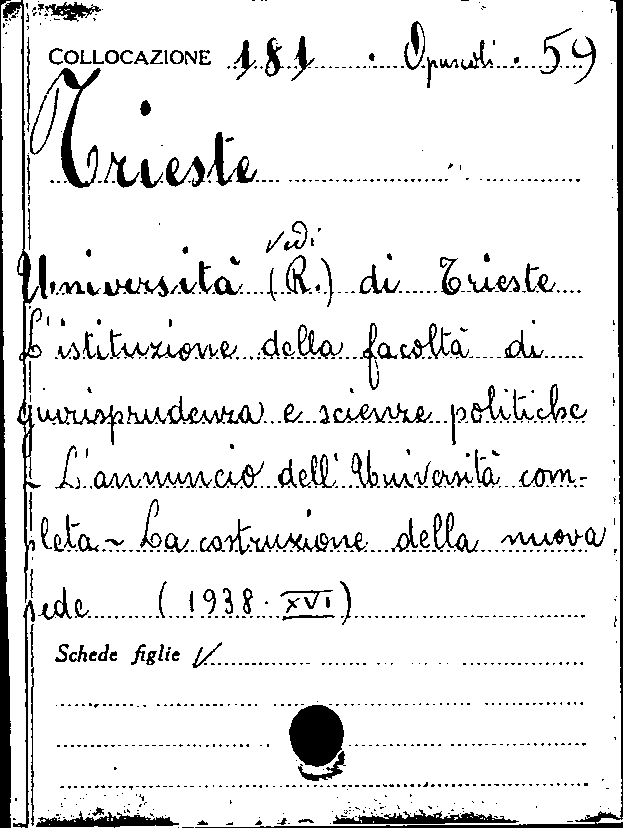 COLLOCAZIONE 181 · Opuscoli · 59
Trieste
Vedi
Università (R.) di Trieste
L'istituzione della facoltà di
giurisprudenza e scienze politiche
- L'annuncio dell'Università com-
pleta - La costruzione della nuova
sede (1938 · XVI)
Schede figlie V